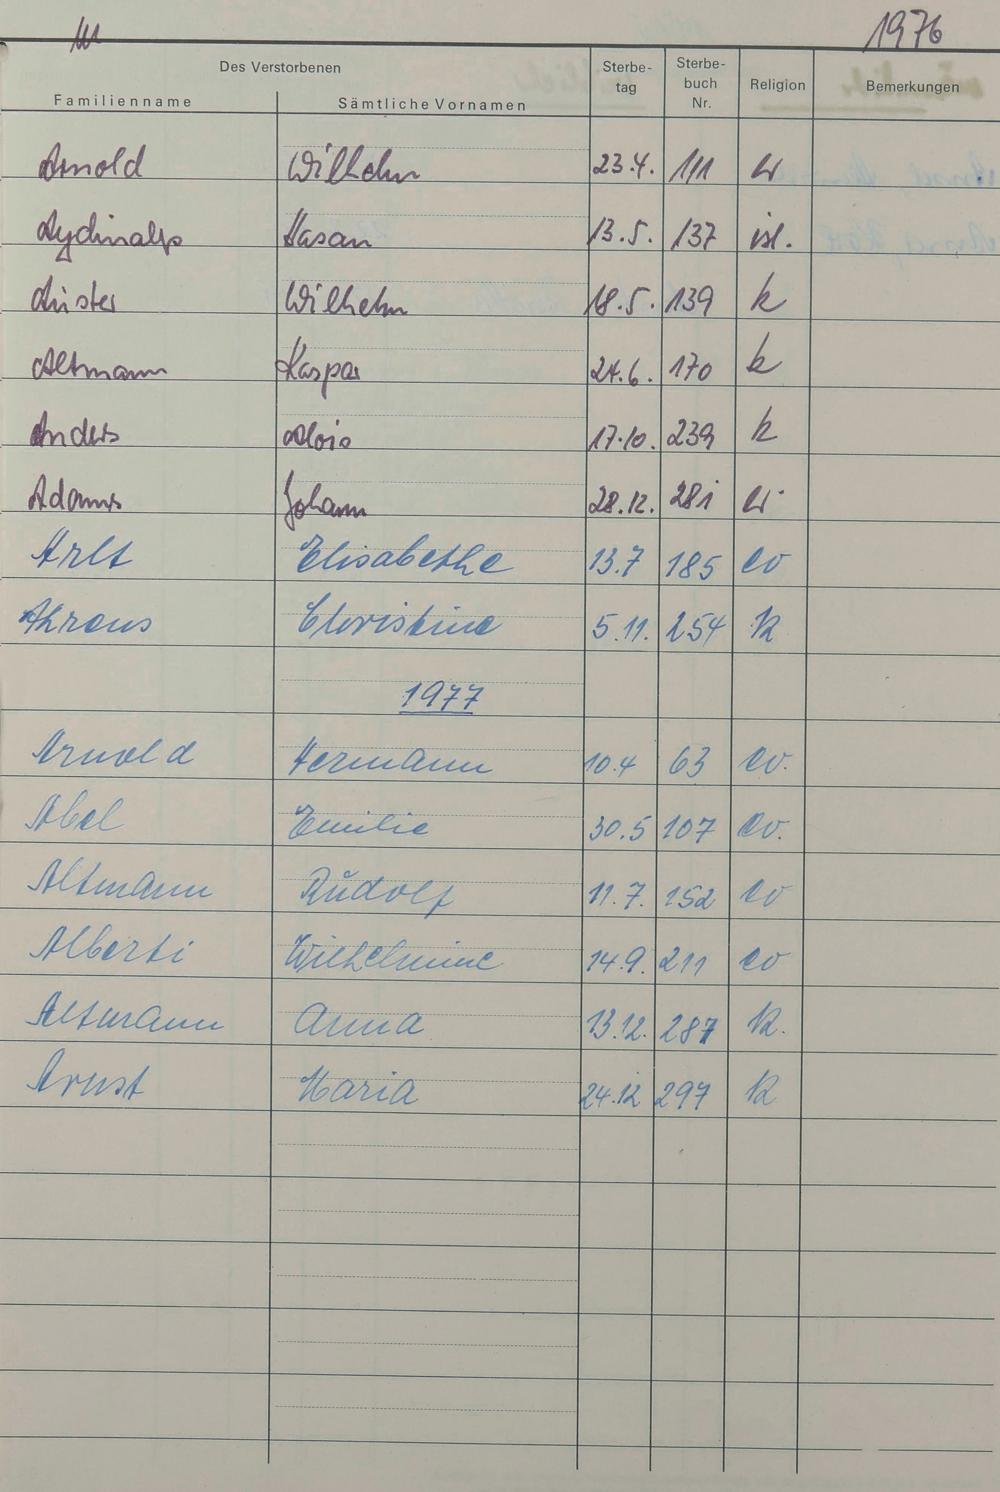 1976
Des Verstorbenen Sterbe- Sterbe- Religion Bemerkungen
Familienname Sämtliche Vornamen tag buch
Nr.
Arnold Wilhelm 23.4. 111 ev
Aydinalp Hasan 13.5. 137 isl.
Wilhelm 18.5. 139 k
Altmann Kaspar 24.6. 170 k
Anders Alois 17.10. 239 k
Adams Johann 28.12. 281 ev
Arlt Elisabethe 13.7 185 ev
Ahrens Christine 5.11. 254 k
1977
Arnold Hermann 10.4 63 ev.
Abel Emilie 30.5 107 ev.
Altmann Rudolf 11.7. 152 ev
Alberti Wilhelmine 14.9. 211 ev
Altmann Anna 13.12. 287 k.
Arnst Maria 24.12 297 k